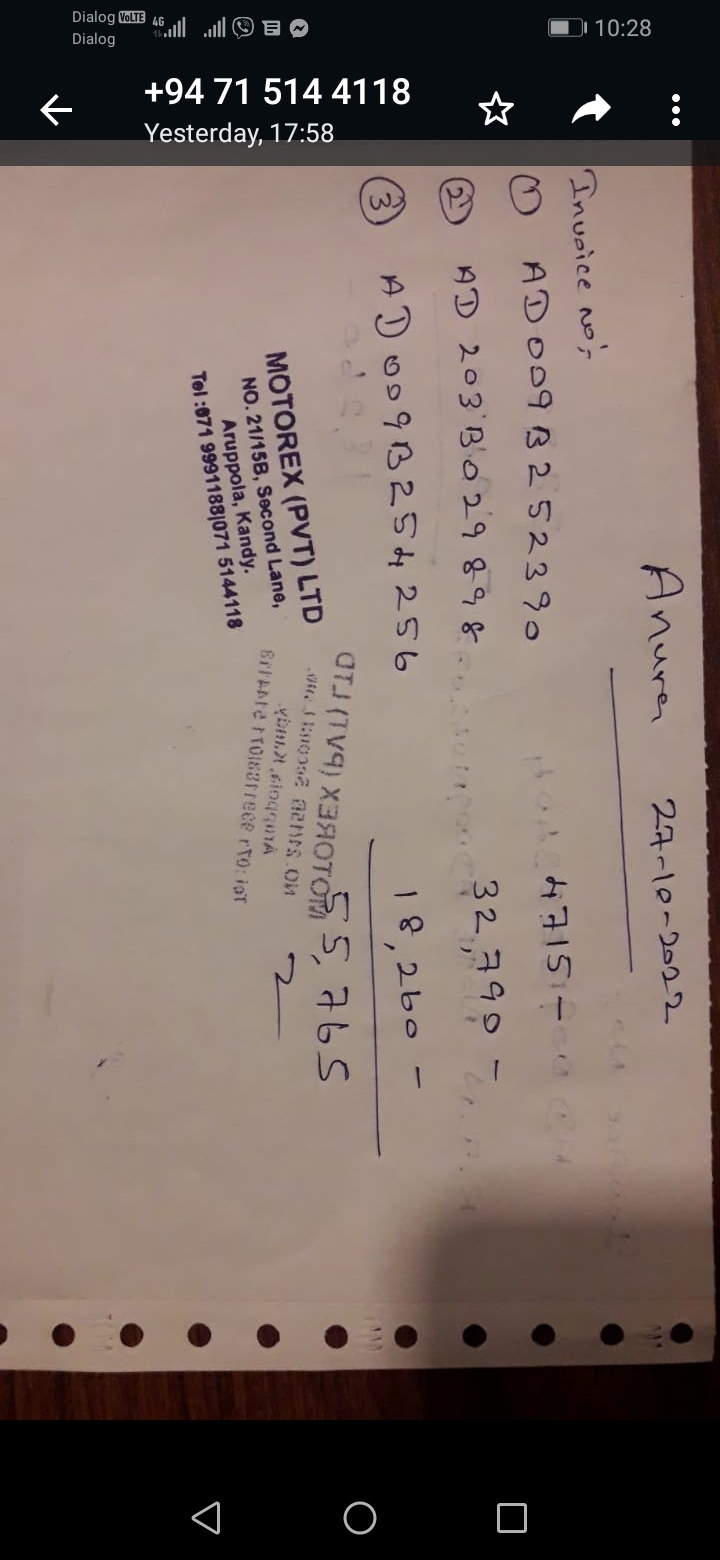 Dialog VoLTE 4G
Dialog
10:28
+94 71 514 4118
Yesterday, 17:58
Anura 27-10-2022
Invoice no:-
① AD009B252390 4715-
② AD203B029898 32,790-
③ AD009B254256 18,260-
55,765
MOTOREX (PVT) LTD
NO. 21/15B, Second Lane,
Aruppola, Kandy.
Tel:071 9991188|071 5144118